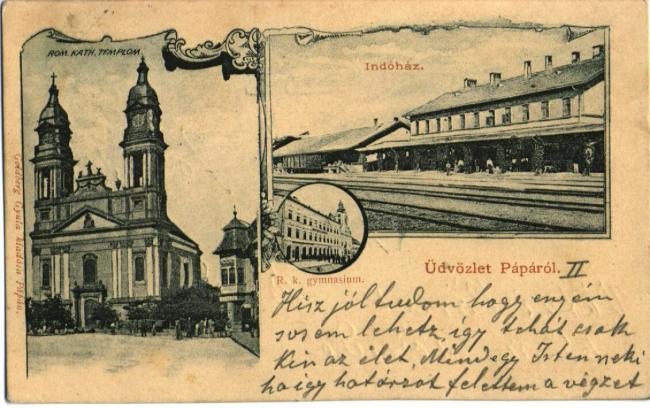 ROM. KATH. TEMPLOM
Indóház.
R. k. gymnasium.
Üdvözlet Pápáról. II
Hisz jól tudom hogy enyém
sosem lehetz, így tehát csak
kin az élet, Mindegy Isten neki
ha így határzot felettem a végzet
Goldberg Gyula kiadása Pápán.